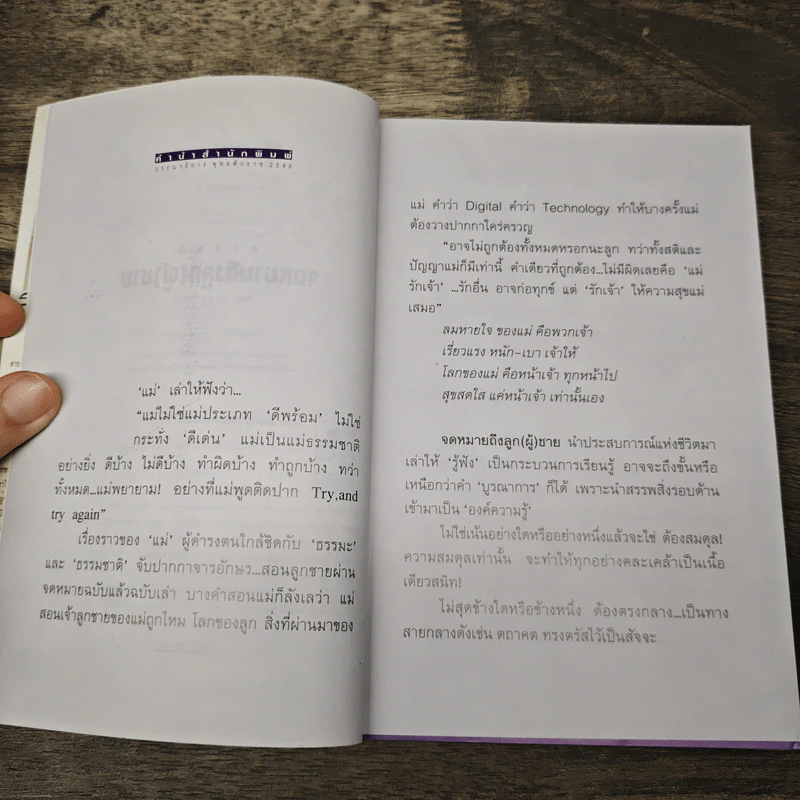 คำนำสำนักพิมพ์
บรรณาธิการ พุทธศักราช 2546
'แม่' เล่าให้ฟังว่า...
"แม่ไม่ใช่แม่ประเภท 'ดีพร้อม' ไม่ใช่
กระทั่ง 'ดีเด่น' แม่เป็นแม่ธรรมชาติ
อย่างยิ่ง ดีบ้าง ไม่ดีบ้าง ทำผิดบ้าง ทำถูกบ้าง ทว่า
ทั้งหมด...แม่พยายาม! อย่างที่แม่พูดติดปาก Try,and
try again"
เรื่องราวของ 'แม่' ผู้ดำรงตนใกล้ชิดกับ 'ธรรมะ'
และ 'ธรรมชาติ' จับปากกาจารอักษร...สอนลูกชายผ่าน
จดหมายฉบับแล้วฉบับเล่า บางคำสอนแม่ก็ลังเลว่า แม่
สอนเจ้าลูกชายของแม่ถูกไหม โลกของลูก สิ่งที่ผ่านมาของ
แม่ คำว่า Digital คำว่า Technology ทำให้บางครั้งแม่
ต้องวางปากกาใคร่ครวญ
"อาจไม่ถูกต้องทั้งหมดหรอกนะลูก ทว่าทั้งสติและ
ปัญญาแม่ก็มีเท่านี้ คำเดียวที่ถูกต้อง...ไม่มีผิดเลยคือ 'แม่
รักเจ้า' ...รักอื่น อาจก่อทุกข์ แต่ 'รักเจ้า' ให้ความสุขแม่
เสมอ"
ลมหายใจ ของแม่ คือพวกเจ้า
เรี่ยวแรง หนัก-เบา เจ้าให้
โลกของแม่ คือหน้าเจ้า ทุกหน้าไป
สุขสดใส แค่หน้าเจ้า เท่านั้นเอง
จดหมายถึงลูก(ผู้)ชาย นำประสบการณ์แห่งชีวิตมา
เล่าให้ 'รู้ฟัง' เป็นกระบวนการเรียนรู้ อาจจะถึงขั้นหรือ
เหนือกว่าคำ 'บูรณาการ' ก็ได้ เพราะนำสรรพสิ่งรอบด้าน
เข้ามาเป็น 'องค์ความรู้'
ไม่ใช่เน้นอย่างใดหรืออย่างหนึ่งแล้วจะใช่ ต้องสมดุล!
ความสมดุลเท่านั้น จะทำให้ทุกอย่างคละเคล้าเป็นเนื้อ
เดียวสนิท!
ไม่สุดข้างใดหรือข้างหนึ่ง ต้องตรงกลาง...เป็นทาง
สายกลางดังเช่น ตถาคต ทรงตรัสไว้เป็นสัจจะ